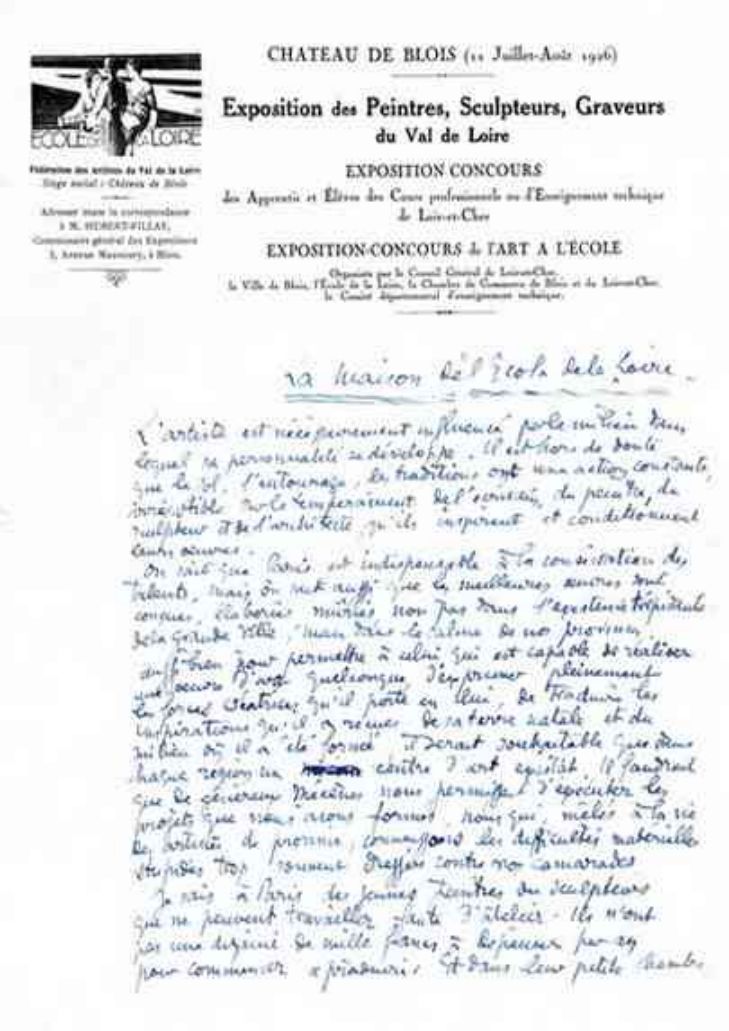 CHATEAU DE BLOIS (11 Juillet-Août 1926)
Exposition des Peintres, Sculpteurs, Graveurs
du Val de Loire
EXPOSITION CONCOURS
des Apprentis et Élèves des Cours professionnels ou d'Enseignement technique
de Loir-et-Cher
EXPOSITION-CONCOURS de l'ART A L'ÉCOLE
Organisée par le Conseil Général de Loir-et-Cher,
la Ville de Blois, l'École de la Loire, la Chambre de Commerce de Blois et du Loir-et-Cher,
le Comité départemental d'enseignement technique.
ECOLE DE LA LOIRE
Fédération des Artistes du Val de la Loire
Siège social : Château de Blois
Adresser toute la correspondance
à M. HUBERT-FILLAY,
Commissaire général des Expositions
3, Avenue Maunoury, à Blois.
La Maison de l'École de la Loire.
L'artiste est nécessairement influencé par le milieu dans
lequel sa personnalité se développe. Il est hors de doute
que le sol, l'entourage, les traditions ont une action constante,
irrésistible sur le tempérament de l'écrivain, du peintre, du
sculpteur et de l'architecte, qu'ils inspirent et conditionnent
leurs oeuvres.
On sait que Paris est indispensable à la consécration des
talents, mais on sait aussi que les meilleures oeuvres sont
conçues, élaborées, mûries non pas dans l'existence trépidante
de la grande ville, mais dans le calme de nos provinces.
aussi bien pour permettre à celui qui est capable de réaliser
une oeuvre d'art quelconque d'exprimer pleinement
les forces créatrices qu'il porte en lui, de traduire les
inspirations qu'il a reçues de sa terre natale et du
milieu où il a été formé il serait souhaitable que dans
chaque région un centre d'art existât. Il faudrait
que de généreux Mécènes nous permissent d'exécuter les
projets que nous avons formés, nous qui, mêlés à la vie
des artistes de province, connaissons les difficultés matérielles
stupides trop souvent dressées contre nos camarades
Je sais à Paris des jeunes peintres ou sculpteurs
qui ne peuvent travailler faute d'atelier. Ils n'ont
pas une dizaine de mille francs à dépenser par an
pour commencer à produire. Et dans leur petite chambre